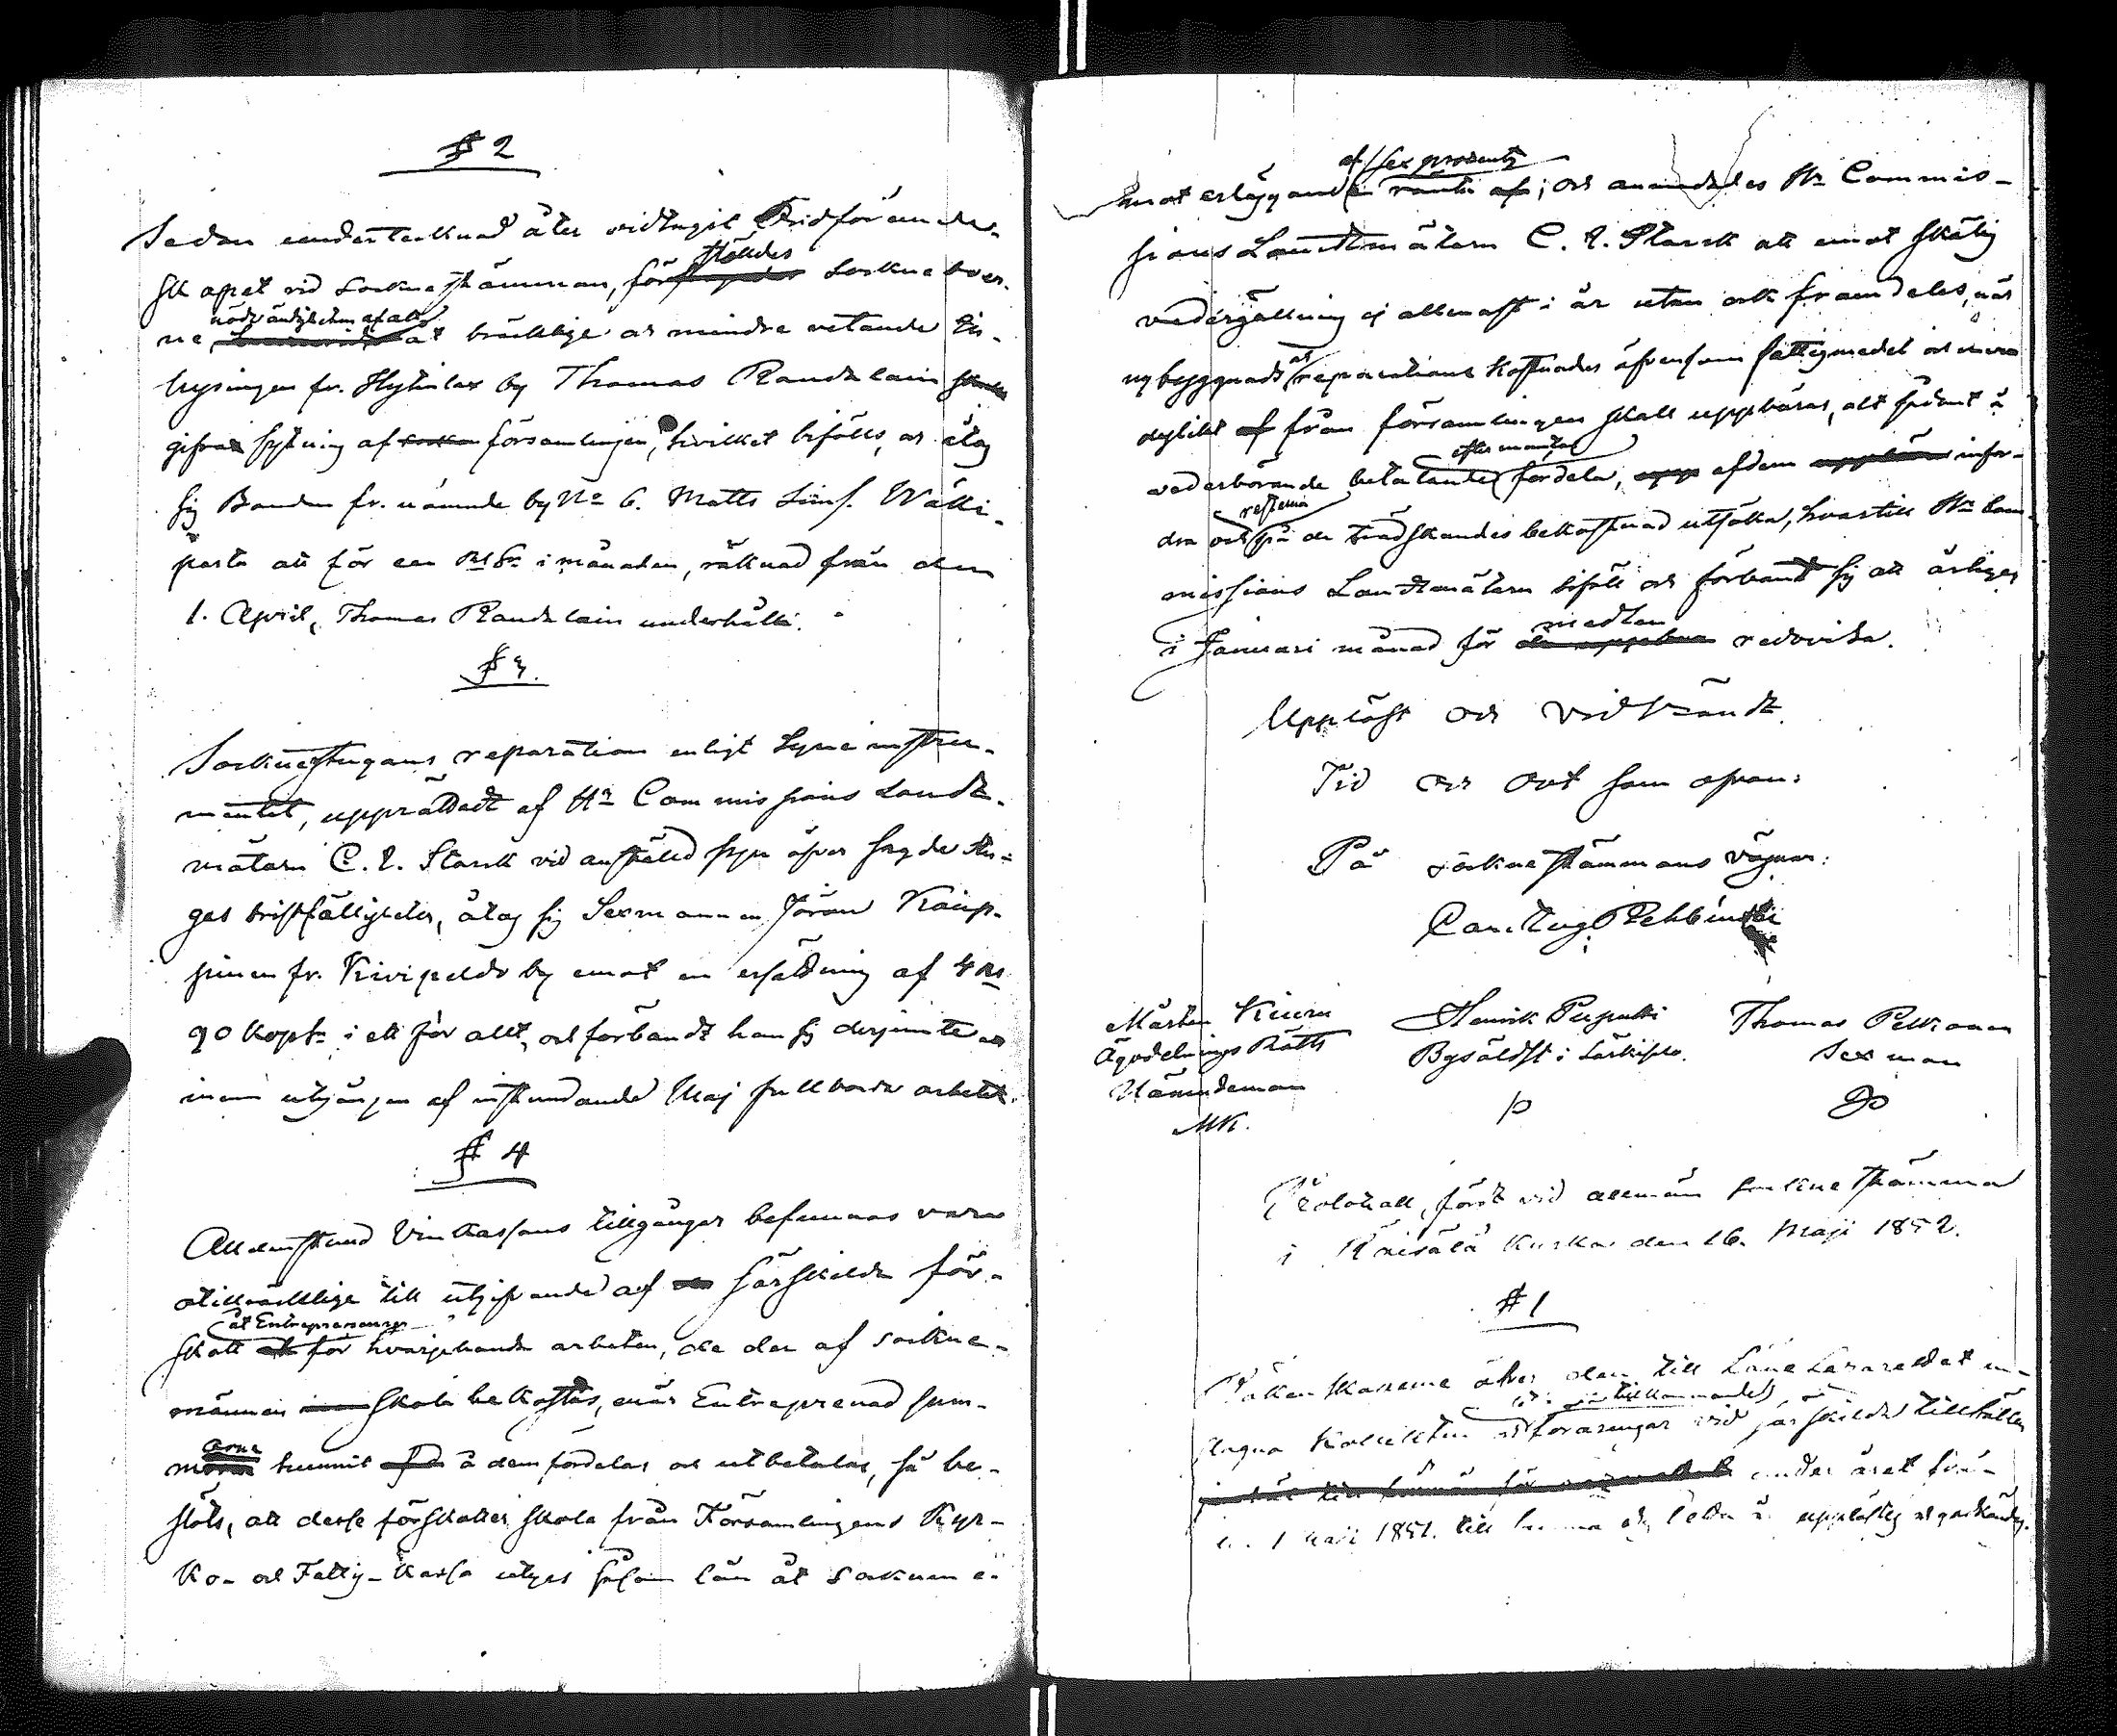 § 2
Sedan undertecknad åter vidtagit Ordförande-
skapet vid sockne stämman, för stäldes Sockneboer-
ne, nödvändigheten af att åt bräcklige och mindre vetande In-
hysingen fr. Hytinlax by Thomas Randalain
gifva sytning af församlingen, hvilket bifölls, och åtog
sig Bonden fr. nämnde by No 6. Matts Sims. Wälli-
parta att för en Rub Sr i månaden, räknad från den
1. April, Thomas Randalain underhålla.
§ 3.
Socknestugans reparation enligt Syne instru-
mentet, upprättadt af Hr Commissions Landt-
mätaren C. E. Starck vid anstäld syn öfver sagde stu-
gas bristfälligheter, åtog sig Sexmannen Jöran Kaup-
pinen fr. Kivipeldo by emot en ersättning af 4 Rub
90 Kop Sr i ett för allt, och förbandt han sig derjemte att
innan utgången af instundande Maj fullborda arbetet.
§ 4
Alldenstund Vinkassans tillgångar befunnos vara
otillräcklige till utgifvande af särskilda för-
skott åt Entrepreneurer för hvarjehanda arbeten, de der af sockne-
männen skola bekostas, enär Entreprenad sum-
morna hunnit å dem fördelas och utbetalas, så be-
slöts, att desse förskotter skola från Församlingens Kyr-
ko- och Fattig-Kassa utges såsom lån åt socknen e-
mot erläggande af sex procents ränta; och anmodades Hr Commis-
sions Landtmätaren C. E. Starck att emot skälig
vedergällning ej allenast i år utan ock framdeles, när
nybyggnads och reparations kostnader äfvensom fattigmedel och mera
dylikt från församlingen skall uppbäras, allt sådant å
vederbörande betalante efter mantal fördela, af dem infor-
dra och resterna på de tredskandes bekostnad utsöka, hvartill Hr Com-
missions Landtmätaren biföll och förbandt sig att årligen
i Januari månad för medlen redovisa.
Uppläst och vidkändt.
Tid och Ort som ofvan:
På sockne stämmans vägnar:
Carl Aug Rehbinder
Mårten Kiuru
Ägodelnings Rätts
Nämndeman
MK.
Henrik Puputti
Byäldste i Särkisalo.
P
Thomas Pelkonen
Sexman
TP
Protokoll, fördt vid allmän sockne stämma
i Räisälä Kyrka den 16. Maji 1852.
§ 1
Räkenskaperne öfver den till Läne Lazarettet in-
flugna Kollekten och föräringar vid särskilda tillfällen
under året från
d. 1 Maji 1851. till samma dag 1852 upplästes och godkändes.